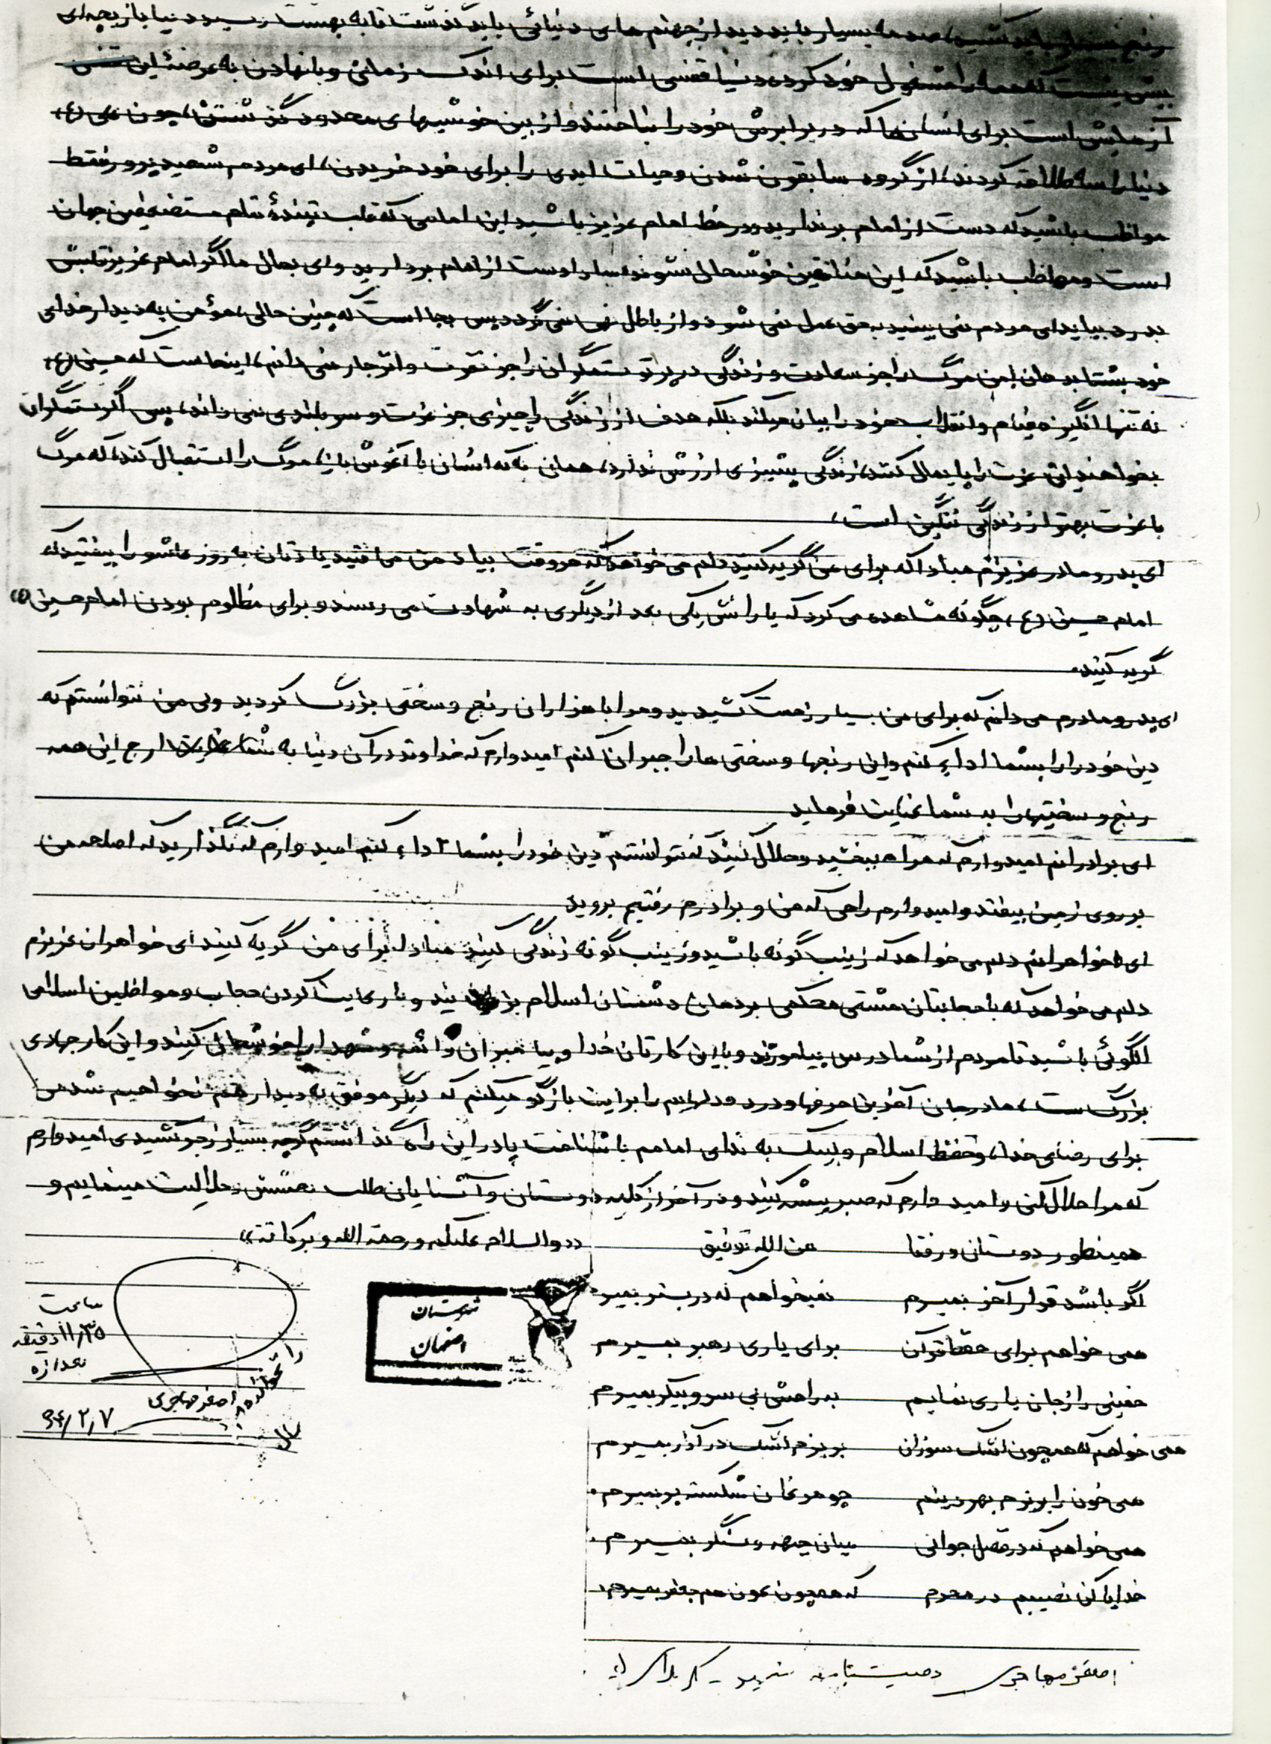 رنج بسیار باید کشید، صدمه بسیار باید دید از جهنم های دنیائی باید گذشت تا به بهشت رسید دنیا بازیچه‌ای
بیش نیست که همه را مشغول خود کرده دنیا قفسی است برای اندک زمانی و پا نهادن به عرصهٔ این قفس
آزمایش است برای انسانها که در برابرش خود را نباختند و از بین خوشیهای محدود گذشتن، چون علی (ع)
دنیا را سه طلاقه کردند، از گروه سابقون شدن و حیات ابدی را برای خود خریدن، ای مردم شهید پرور فقط
مواظب باشید که دست از امام برندارید و در خط امام عزیز باشید این امامی که قلب تپندهٔ تمام مستضعفین جهان
است و مواظب باشید که این منافقین خوشحال نشوند مبادا دست از امام بردارید وای بحال ما اگر امام عزیز قلبش
بدرد بیاید ای مردم نمی بینید به حق عمل نمی شود و از باطل نهی نمی گردد پس بجا است که چنین حالی، مؤمن به دیدار خدای
خود بشتابد همان من مرگ را جز سعادت و زندگی در پرتو ستمگران را جز نفرت و انزجار نمی دانم، اینجاست که حسین (ع)
نه تنها انگیزه قیام و انقلاب خود را بیان میکند بلکه هدف از زندگی را چیزی جز عزت و سربلندی نمی داند، پس اگر ستمگران
بخواهند این عزت را پایمال کنند، زندگی پشیزی ارزش ندارد، همان به که انسان با آغوش باز، مرگ را استقبال کند، که مرگ
با عزت بهتر از زندگی ننگین است،
ای پدر و مادر عزیزم مبادا که برای من گریه کنید دلم می خواهد که هر وقت بیاد من می افتید یادتان به روز عاشورا بیفتید که
امام حسین (ع) چگونه مشاهده می کرد که یارانش یکی بعد از دیگری به شهادت می رسند و برای مظلوم بودن امام حسین (ع)
گریه کنید.
ای پدر و مادرم می دانم که برای من بسیار زحمت کشیدید و مرا با هزاران رنج و سختی بزرگ کردید ولی من نتوانستم که
دین خود را را بشما اداء کنم و این رنجها و سختی ها را جبران کنم امیدوارم که خداوند در آن دنیا به شما اجر این همه
رنج و سختیها را به شما عنایت فرماید
ای برادرانم امیدوارم که مرا ببخشید و حلال کنید که نتوانستم دین خود را بشما اداء کنم امیدوارم که نگذارید که اسلحه من
بر روی زمین بیفتد و امیدوارم راهی که من و برادرم رفتیم بروید
ای خواهرانم دلم می خواهد که زینب گونه باشید و زینب گونه زندگی کنید مبادا برای من گریه کنید ای خواهران عزیزم
دلم می خواهد که با حجابتان مشتی محکمی بر دهان دشمنان اسلام بزنید و با رعایت کردن حجاب و موازین اسلامی
الگوئی باشید تا مردم از شما درس بیاموزند و با این کارتان خدا و پیامبران و ائمه و شهدا را خوشحال کنید و این کار جهادی
بزرگ است، مادر جان آخرین حرفها و درد دلهایم را برایت بازگو میکنم که دیگر موفق به دیدار هم نخواهیم شد من
برای رضای خدا، و حفظ اسلام و لبیک به ندای امامم با شناخت پا در این راه گذاشتم گرچه بسیار زجر کشیدی امیدوارم
که مرا حلال کنی و امید دارم که صبر پیشه کنید و در آخر از کلیه دوستان و آشنایان طلب بخشش و حلالیت مینمایم و
همینطور دوستان و رفقا من الله توفیق «والسلام علیکم و رحمة الله و برکاته»
اگر باشد قرار آخر بمیرم نمیخواهم که در بستر بمیرم
همی خواهم برای حفظ قرآن برای یاری رهبر بمیرم
خمینی را ز جان یاری نمایم به راهش بی سر و پیکر بمیرم
همی خواهم که همچون اشک سوزان بریزم اشک در آذر بمیرم
همی خون را بریزم بهر دینم چو مرغان شکسته پر بمیرم
همی خواهم که در فصل جوانی میان جبهه و سنگر بمیرم
خدایا کن نصیبم در محرم که همچون عون هم جعفر بمیرم
شهرستان
اصفهان
ساعت
۱۱/۳۵ دقیقه
بعدازه
اصغر مهاجری
۶۴/۲/۷
اصغر مهاجری وصیتنامه شهید کربلای